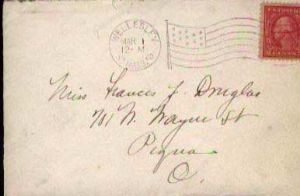 WELLESLEY
MAR 1
12-M
MASS.
Miss Frances J. Douglas
701 N. Wayne St
Piqua
O.